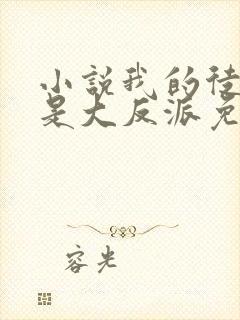 小说我的徒
是大反派免
容光